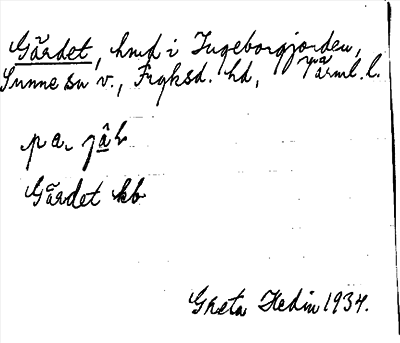 Gärdet, hmd i Ingeborgjorden,
Sunne sn v., Fryksd. hd, Värml. l.
på
Gärdet kb
Greta Hedin 1934.